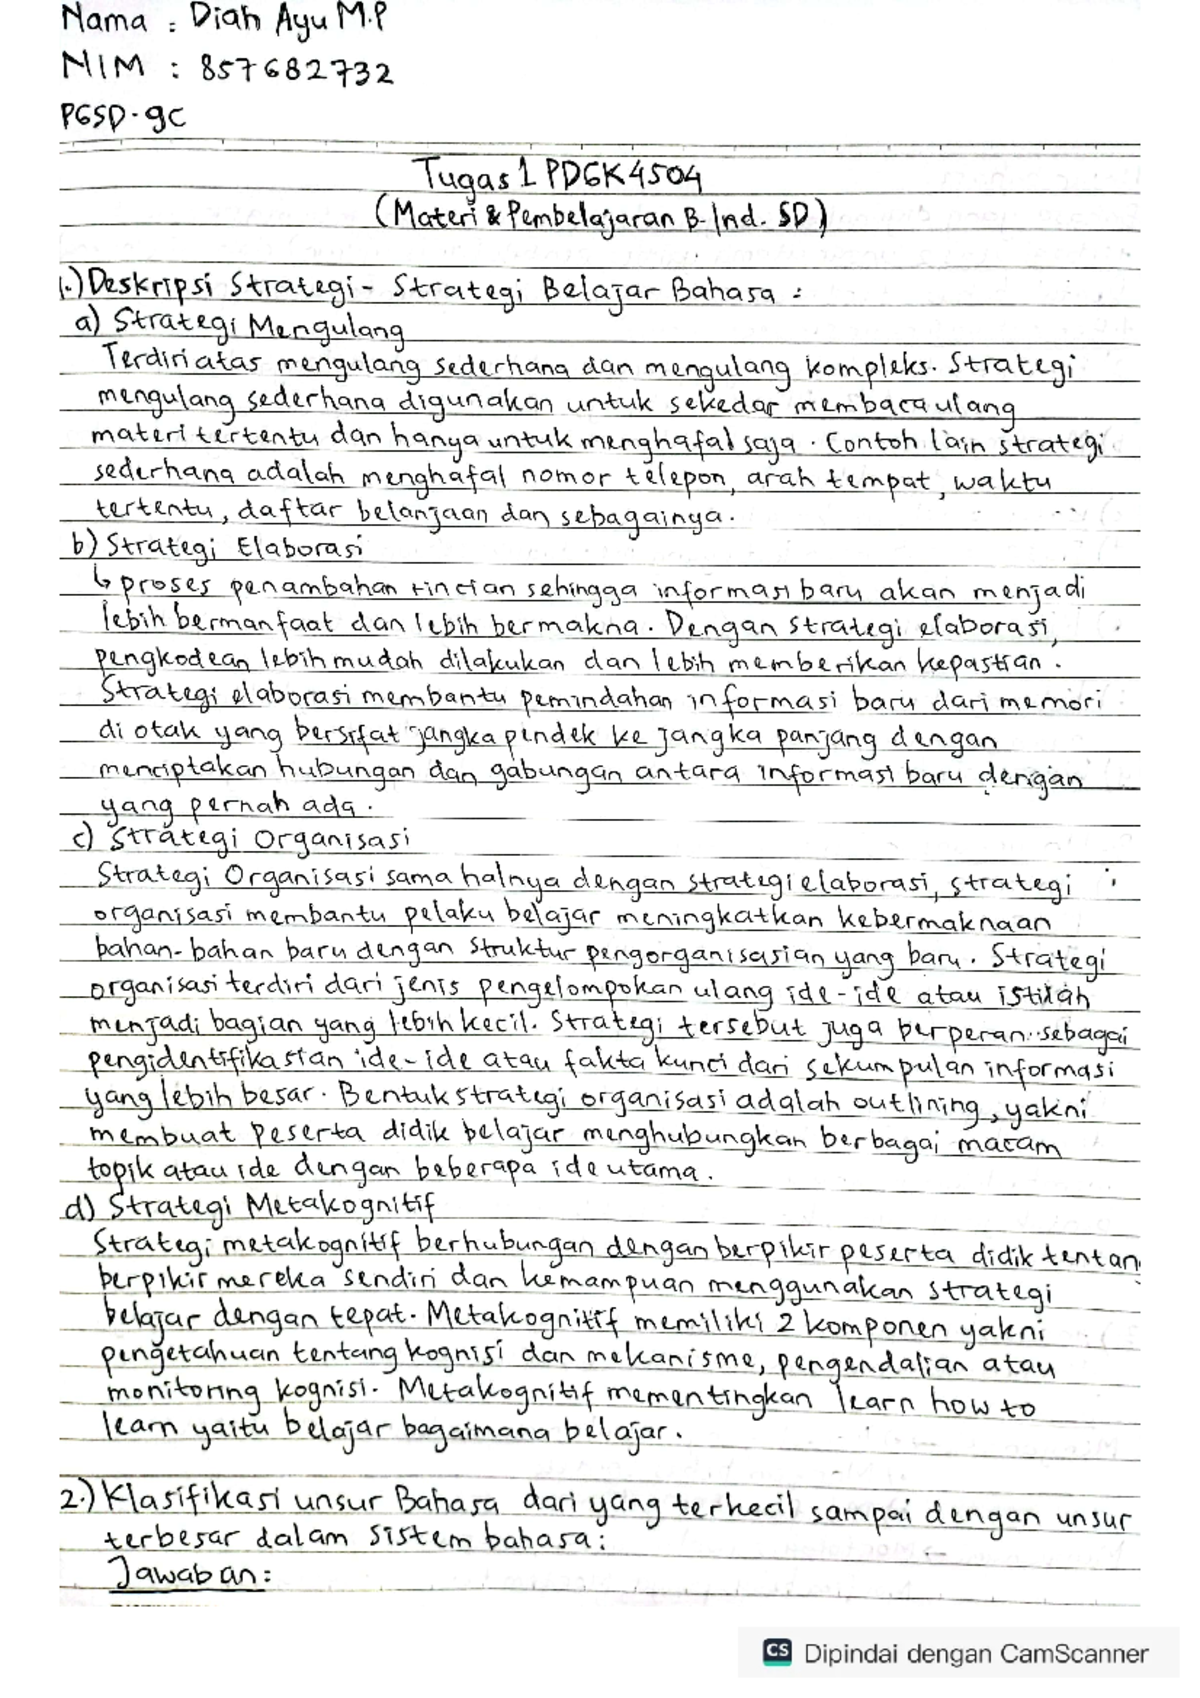 Nama : Diah Ayu M.P
NIM : 857682732
PGSD-9C
Tugas 1 PDGK4504
(Materi & Pembelajaran B.Ind. SD)
1.) Deskripsi Strategi - Strategi Belajar Bahasa :
a) Strategi Mengulang
Terdiri atas mengulang sederhana dan mengulang kompleks. Strategi
mengulang sederhana digunakan untuk sekedar membaca ulang
materi tertentu dan hanya untuk menghafal saja. Contoh lain strategi
sederhana adalah menghafal nomor telepon, arah tempat, waktu
tertentu, daftar belanjaan dan sebagainya.
b) Strategi Elaborasi
↳ proses penambahan rincian sehingga informasi baru akan menjadi
lebih bermanfaat dan lebih bermakna. Dengan strategi elaborasi,
pengkodean lebih mudah dilakukan dan lebih memberikan kepastian.
Strategi elaborasi membantu pemindahan informasi baru dari memori
di otak yang bersifat jangka pendek ke jangka panjang dengan
menciptakan hubungan dan gabungan antara informasi baru dengan
yang pernah ada.
c) Strategi Organisasi
Strategi Organisasi sama halnya dengan strategi elaborasi, strategi
organisasi membantu pelaku belajar meningkatkan kebermaknaan
bahan-bahan baru dengan struktur pengorganisasian yang baru. Strategi
organisasi terdiri dari jenis pengelompokan ulang ide-ide atau istilah
menjadi bagian yang lebih kecil. Strategi tersebut juga berperan sebagai
pengidentifikasian ide-ide atau fakta kunci dari sekumpulan informasi
yang lebih besar. Bentuk strategi organisasi adalah outlining, yakni
membuat peserta didik belajar menghubungkan berbagai macam
topik atau ide dengan beberapa ide utama.
d) Strategi Metakognitif
Strategi metakognitif berhubungan dengan berpikir peserta didik tentan
berpikir mereka sendiri dan kemampuan menggunakan strategi
belajar dengan tepat. Metakognitif memiliki 2 komponen yakni
pengetahuan tentang kognisi dan mekanisme, pengendalian atau
monitoring kognisi. Metakognitif mementingkan learn how to
learn yaitu belajar bagaimana belajar.
2.) Klasifikasi unsur Bahasa dari yang terkecil sampai dengan unsur
terbesar dalam sistem bahasa:
Jawaban:
CS Dipindai dengan CamScanner